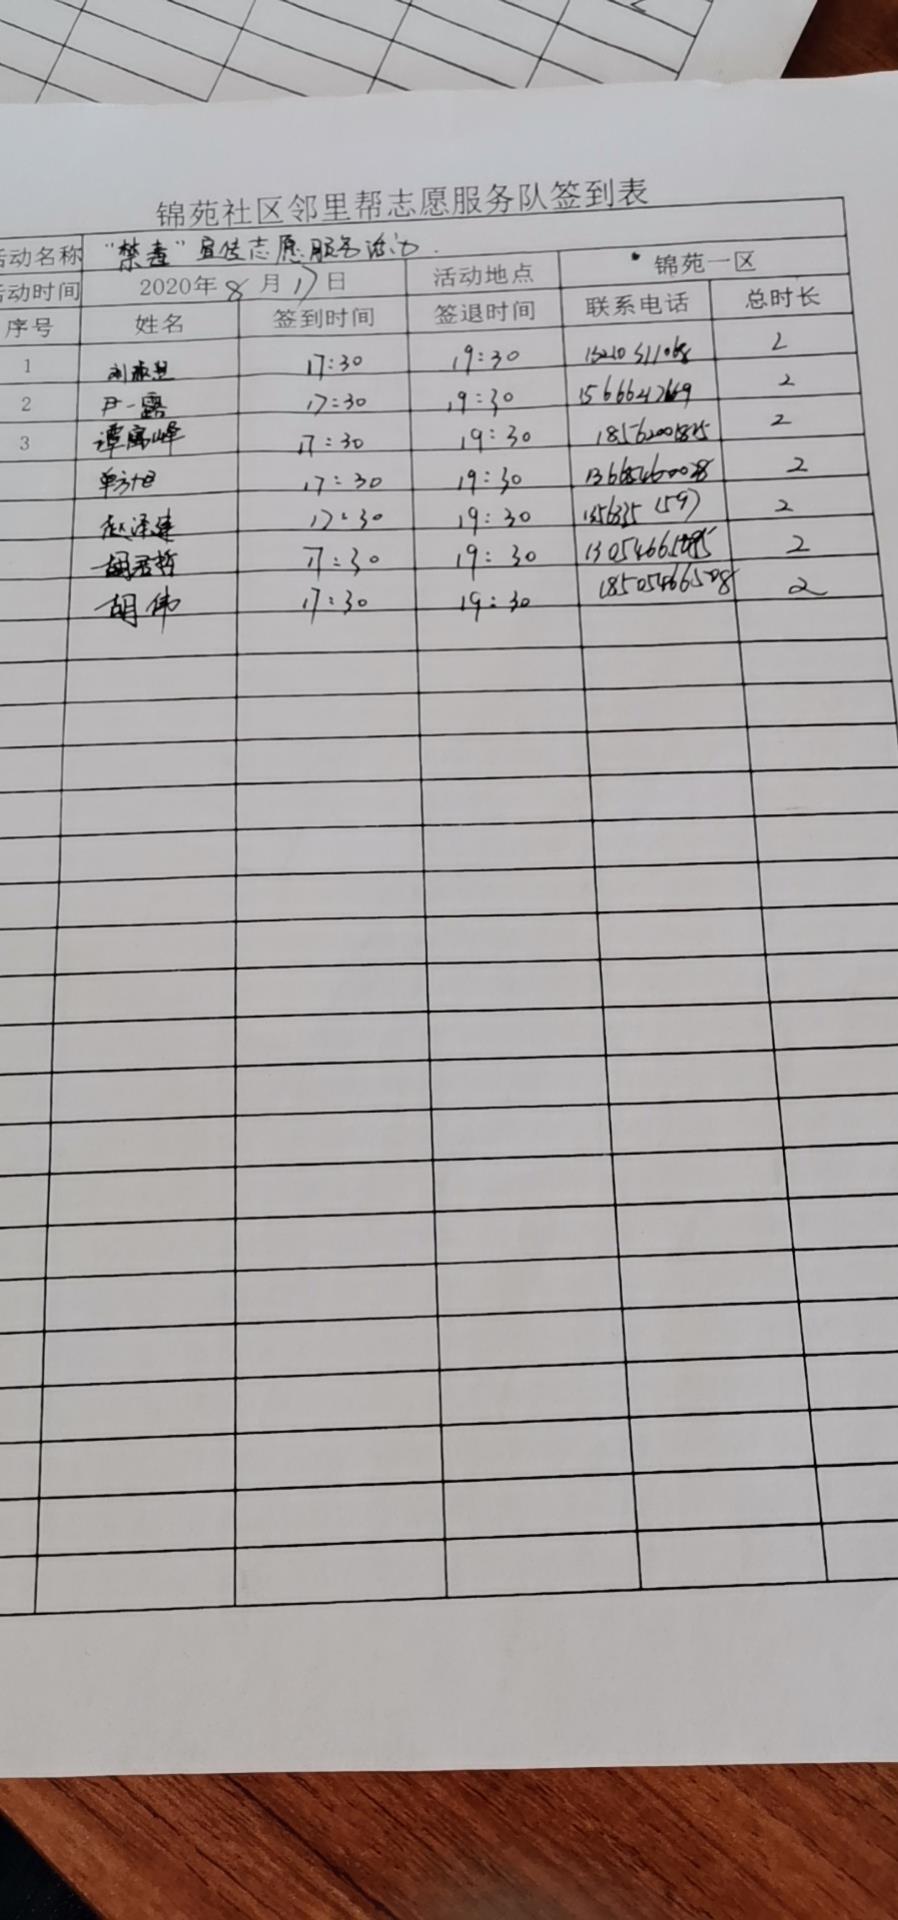 锦苑社区邻里帮志愿服务队签到表
活动名称 "禁毒"宣传志愿服务活动.
活动时间 2020年8月17日 活动地点 锦苑一区
序号 姓名 签到时间 签退时间 联系电话 总时长
1 17:30 19:30 2
2 尹一露 17:30 19:30 2
3 谭富峰 17:30 19:30 2
单方旭 17:30 19:30 2
赵泽建 17:30 19:30 2
胡君哲 17:30 19:30 2
胡伟 17:30 19:30 18505466508 2